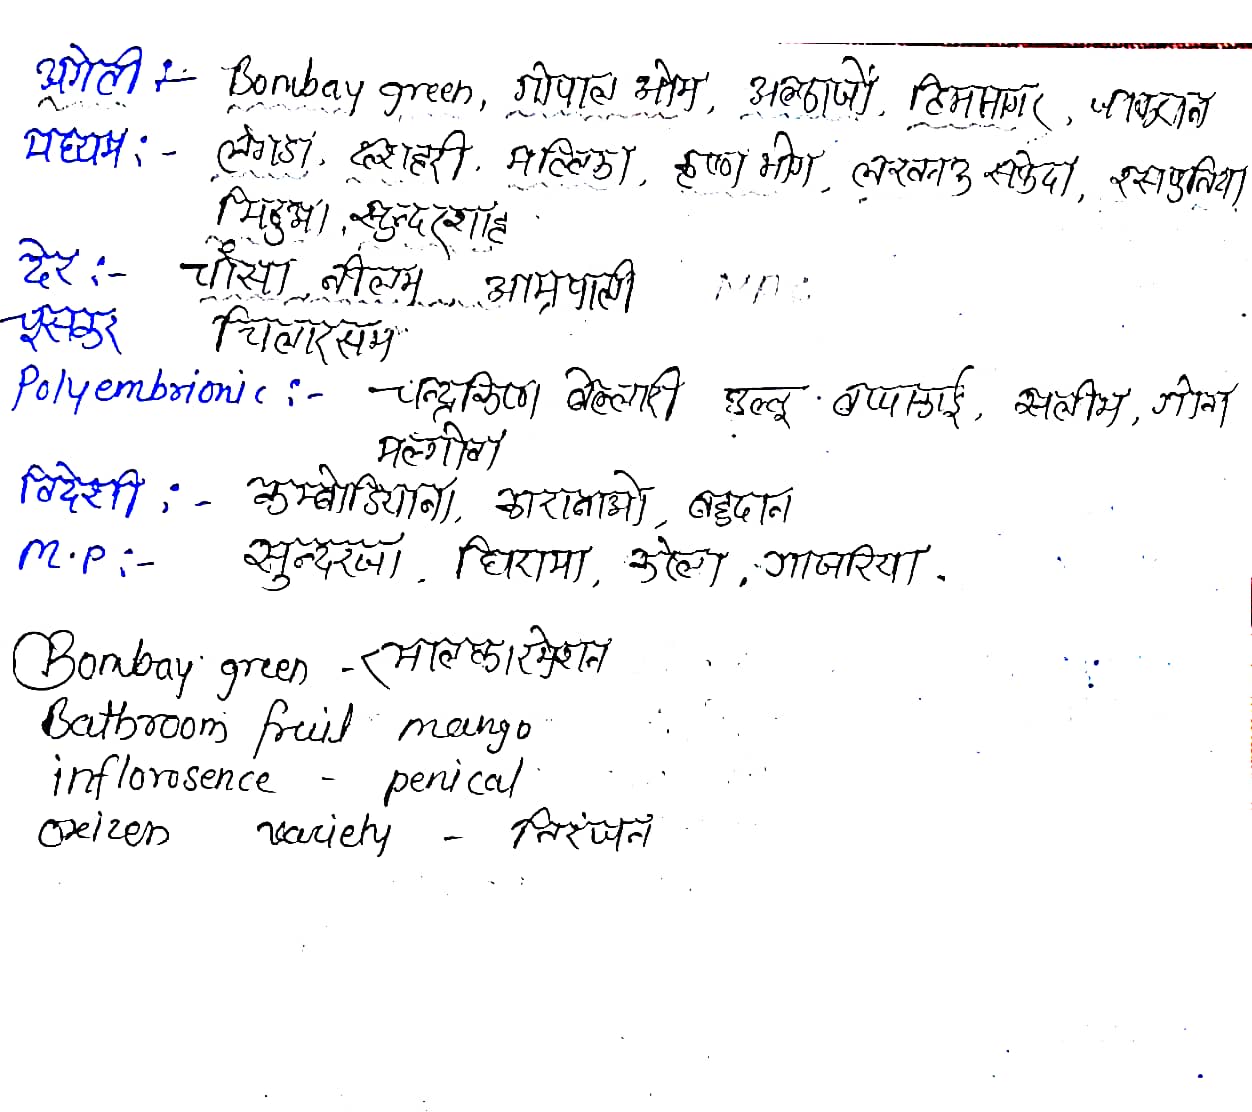 अगेती :- Bombay green, गोपाल भोग, अल्फाजों, हिमसागर, जाफरान
मध्यम :- लंगडा, दशहरी, मल्लिका, कृष्ण भोग, लखनऊ सफेदा, रसपुनिया
मिठुआ, सुन्दरशाह
देर :- चौंसा नीलम आम्रपाली
चूसकर चिलारसम
Polyembrionic :- चन्द्रकिरण बेल्लारी बप्पाकाई, सलीम, गोवा
मल्गोवा
विदेशी :- कम्बोडियाना, काराबाओ,
M.P :- सुन्दरजा, घिरामा, करेला, गाजरिया.
Bombay green - मालकारमेशन
Bathroom fruit mango
inflorosence - penical
oxeizen variety - निरंजन